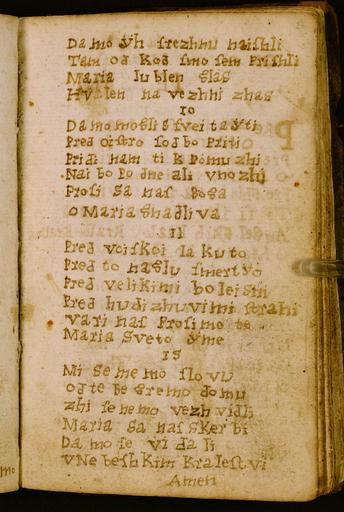 Da mo yh srezhnu naishli
Tam od Kod smo sem Prishli
Maria lublen glas
Hvalen na vezhni zhas
10
Da mo mogli s svei ta yti
Pred ostro sodbo Priti
Pridi nam ti k Pomuzhi
Nai bo Po dne ali vnozhi
Prosi Ga nas Boga
o Maria Gnadliva
11
Pred voiskoi la Kuto
Pred to naglu smertyo
Pred velikimi boleisni
Pred hudi zhuvimi strahi
vari nas Prosimo te
Maria Sveto yme
12
Mi se me mo slovu
od te be gremo domu
zhi se ne mo vezh vidli
Maria Ga nas sker bi
Da mo se vi da li
v Ne besh Kim Kralest vi
Amen
mo